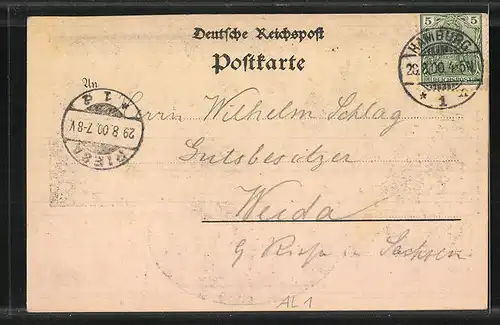 Deutsche Reichspost
Postkarte
5 5
REICHSPOST
HAMBURG
28.8.00 4-5N
* 1 a
An
* 1 a
29.8.00.7-8V.
RIESA
Herrn Wilhelm Schlag
Gutsbesitzer
Weida
b/ Riesa in Sachsen
AL 1